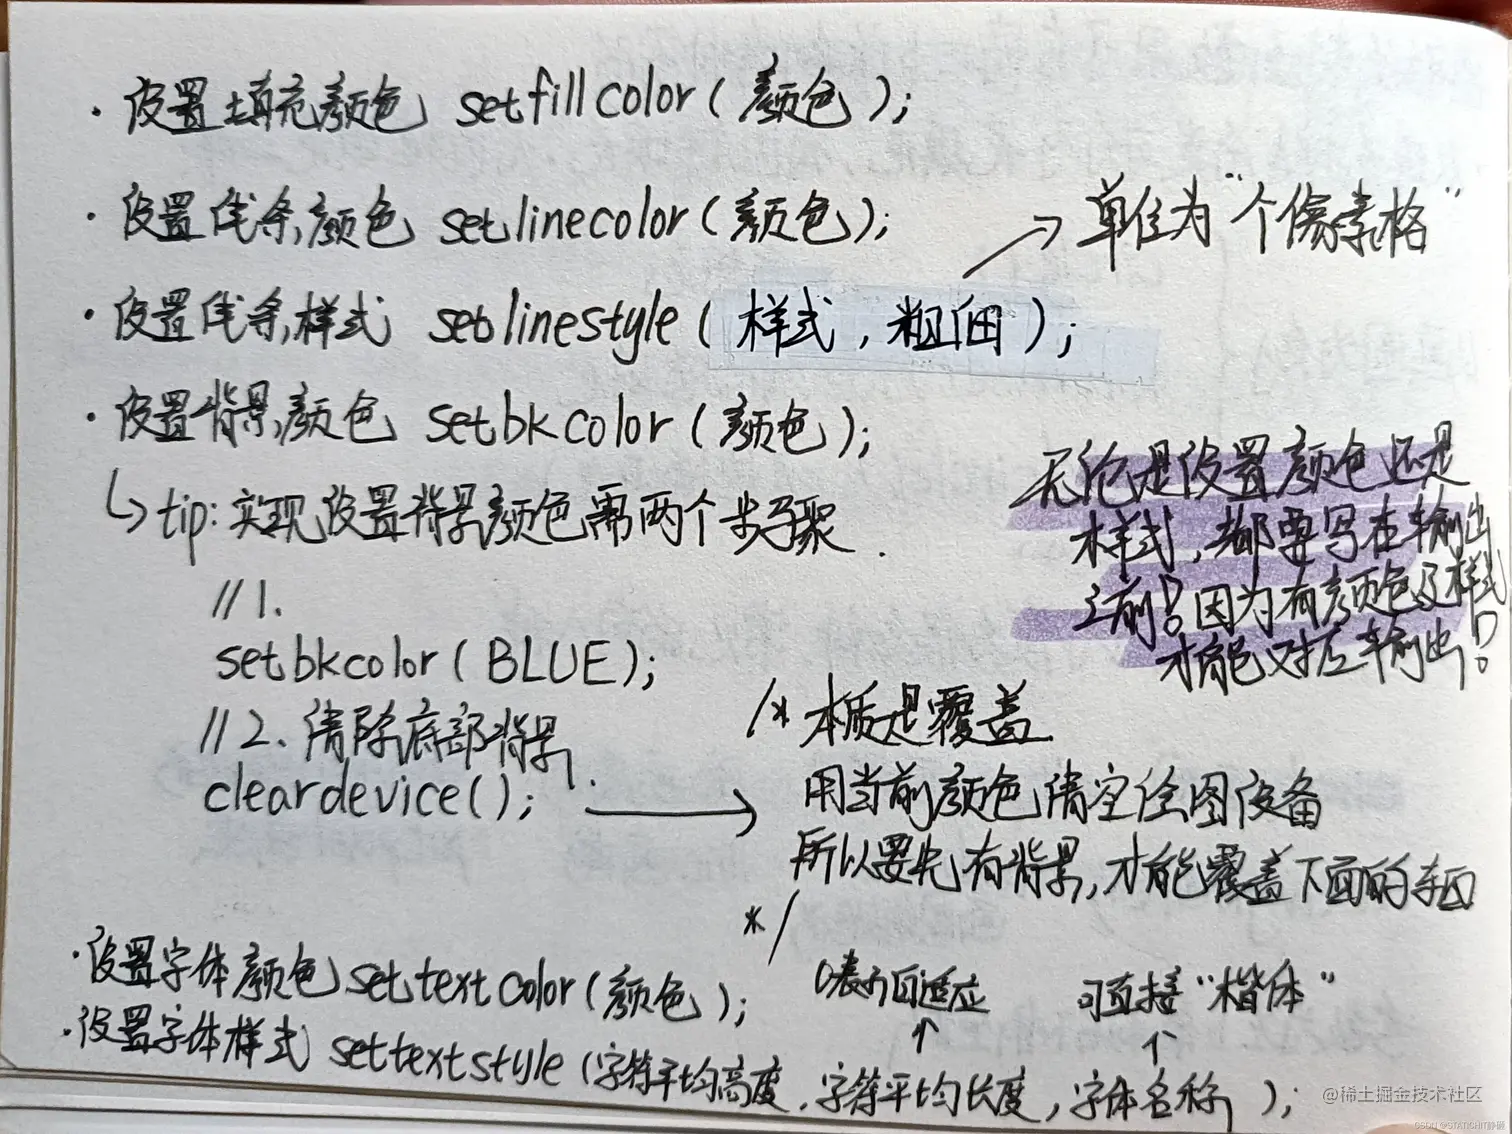 · 设置填充颜色 setfillcolor(颜色);
· 设置线条颜色 setlinecolor(颜色);
→ 单位为"个像素格"
· 设置线条样式 setlinestyle(样式,粗细);
· 设置背景颜色 setbkcolor(颜色);
↳ tip: 实现设置背景颜色需两个步骤.
//1.
setbkcolor(BLUE);
//2. 清除底部背景.
cleardevice(); →
无论是设置颜色还是
样式,都要写在输出
之前!因为有颜色及样式
才能对应输出!
/* 本质是覆盖.
用当前颜色清空绘图设备
所以要先有背景,才能覆盖下面的东西
*/
· 设置字体颜色 settextcolor(颜色);
0表示自适应
可直接"楷体"
· 设置字体样式 settextstyle(字符平均高度,字符平均长度,字体名称);
@稀土掘金技术社区